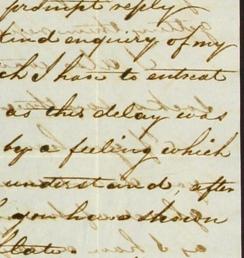 prompt reply
kind enquiry of my
ch I have to entreat
as this delay was
by a feeling which
understand, after
you have shown
late.